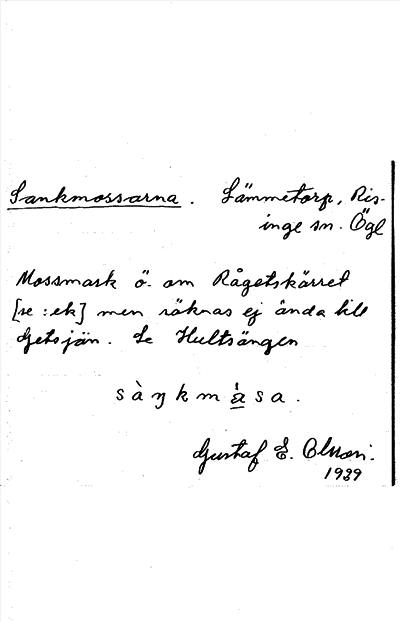 Sankmossarna. Lämmetorp, Ris-
inge sn. Ögl
Mossmark ö. om Rågetskärret
[se :ek] men räknas ej ända till
Getsjön. Se Hultsängen
sàŋkmåsa.
Gustaf E. Olsson.
1939